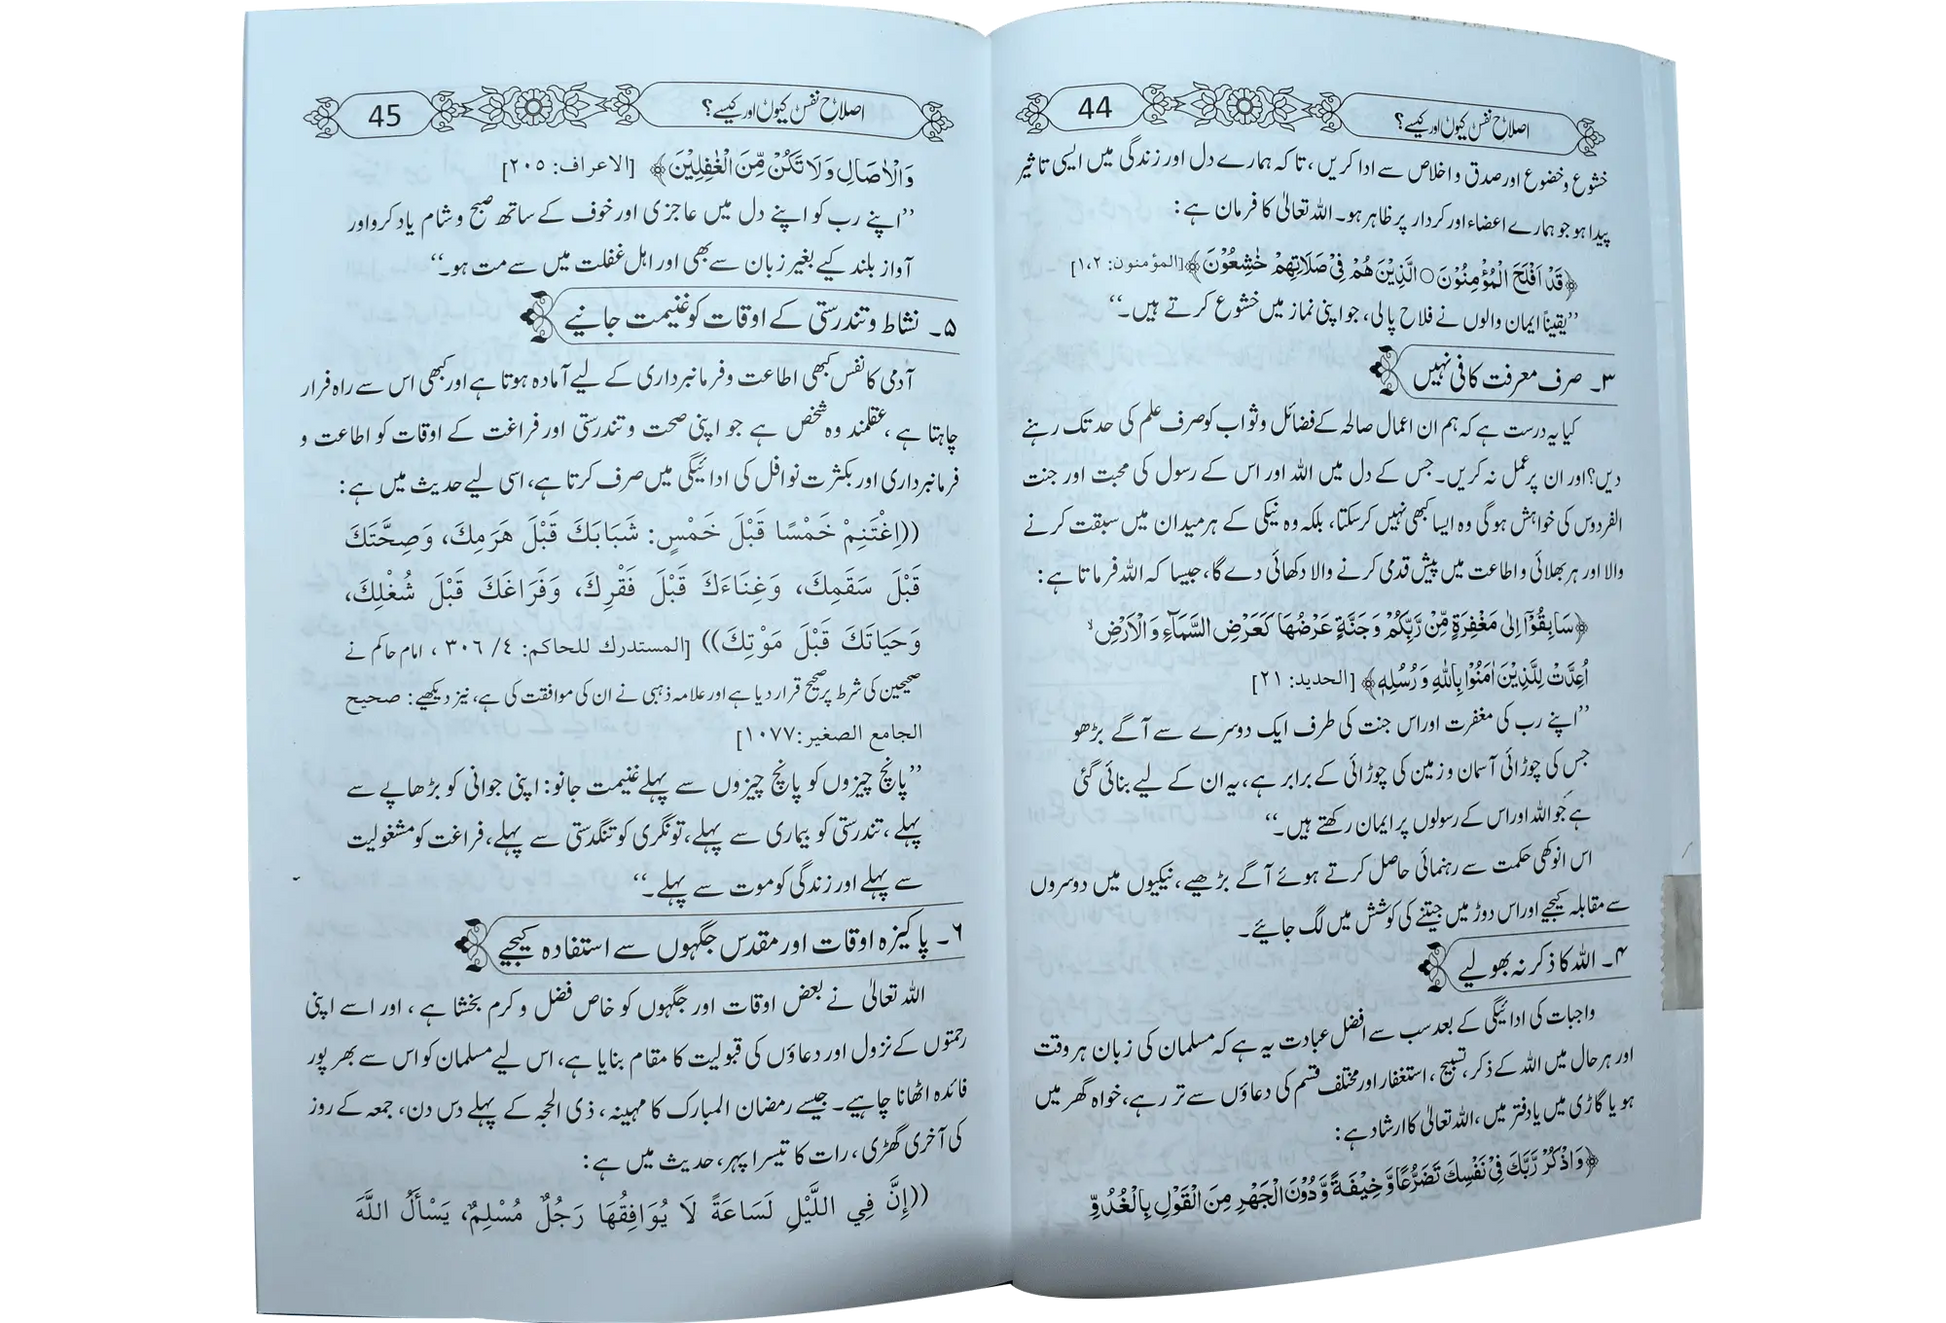 اصلاح نفس کیوں اور کیسے؟ 44
خشوع وخضوع اور صدق و اخلاص سے ادا کریں، تاکہ ہمارے دل اور زندگی میں ایسی تاثیر
پیدا ہو جو ہمارے اعضاء اور کردار پر ظاہر ہو۔ اللہ تعالیٰ کا فرمان ہے:
﴿قَدْ اَفْلَحَ الْمُؤْمِنُوْنَ ○ الَّذِيْنَ هُمْ فِيْ صَلَاتِهِمْ خٰشِعُوْنَ﴾ [المؤمنون: ۱،۲]
’’یقیناً ایمان والوں نے فلاح پالی، جو اپنی نماز میں خشوع کرتے ہیں۔‘‘
۳۔ صرف معرفت کافی نہیں
کیا یہ درست ہے کہ ہم ان اعمال صالحہ کے فضائل وثواب کو صرف علم کی حد تک رہنے
دیں؟ اور ان پر عمل نہ کریں۔ جس کے دل میں اللہ اور اس کے رسول کی محبت اور جنت
الفردوس کی خواہش ہوگی وہ ایسا کبھی نہیں کرسکتا، بلکہ وہ نیکی کے ہر میدان میں سبقت کرنے
والا اور ہر بھلائی و اطاعت میں پیش قدمی کرنے والا دکھائی دے گا، جیسا کہ اللہ فرماتا ہے:
﴿سَابِقُوْٓا اِلٰى مَغْفِرَةٍ مِّنْ رَّبِّكُمْ وَجَنَّةٍ عَرْضُهَا كَعَرْضِ السَّمَآءِ وَالْاَرْضِ ۙ
اُعِدَّتْ لِلَّذِيْنَ اٰمَنُوْا بِاللّٰهِ وَرُسُلِهٖ﴾ [الحديد: ۲۱]
’’اپنے رب کی مغفرت اور اس جنت کی طرف ایک دوسرے سے آگے بڑھو
جس کی چوڑائی آسمان و زمین کی چوڑائی کے برابر ہے، یہ ان کے لیے بنائی گئی
ہے جو اللہ اور اس کے رسولوں پر ایمان رکھتے ہیں۔‘‘
اس انوکھی حکمت سے رہنمائی حاصل کرتے ہوئے آگے بڑھیے، نیکیوں میں دوسروں
سے مقابلہ کیجیے اور اس دوڑ میں جیتنے کی کوشش میں لگ جائیے۔
۴۔ اللہ کا ذکر نہ بھولیے
واجبات کی ادائیگی کے بعد سب سے افضل عبادت یہ ہے کہ مسلمان کی زبان ہر وقت
اور ہر حال میں اللہ کے ذکر، تسبیح، استغفار اور مختلف قسم کی دعاؤں سے تر رہے، خواہ گھر میں
ہو یا گاڑی میں یا دفتر میں، اللہ تعالیٰ کا ارشاد ہے:
﴿وَاذْكُرْ رَّبَّكَ فِيْ نَفْسِكَ تَضَرُّعًا وَّخِيْفَةً وَّدُوْنَ الْجَهْرِ مِنَ الْقَوْلِ بِالْغُدُوِّ
اصلاح نفس کیوں اور کیسے؟ 45
وَالْاٰصَالِ وَلَا تَكُنْ مِّنَ الْغٰفِلِيْنَ﴾ [الاعراف: ۲۰۵]
’’اپنے رب کو اپنے دل میں عاجزی اور خوف کے ساتھ صبح و شام یاد کرو اور
آواز بلند کیے بغیر زبان سے بھی اور اہل غفلت میں سے مت ہو۔‘‘
۵۔ نشاط و تندرستی کے اوقات کو غنیمت جانیے
آدمی کا نفس کبھی اطاعت وفرمانبرداری کے لیے آمادہ ہوتا ہے اور کبھی اس سے راہ فرار
چاہتا ہے، عقلمند وہ شخص ہے جو اپنی صحت و تندرستی اور فراغت کے اوقات کو اطاعت و
فرمانبرداری اور بکثرت نوافل کی ادائیگی میں صرف کرتا ہے، اسی لیے حدیث میں ہے:
((اِغْتَنِمْ خَمْسًا قَبْلَ خَمْسٍ: شَبَابَكَ قَبْلَ هَرَمِكَ، وَصِحَّتَكَ
قَبْلَ سَقَمِكَ، وَغِنَاءَكَ قَبْلَ فَقْرِكَ، وَفَرَاغَكَ قَبْلَ شُغْلِكَ،
وَحَيَاتَكَ قَبْلَ مَوْتِكَ)) [المستدرك للحاكم: ٤/ ٣٠٦ ، امام حاکم نے
صحیحین کی شرط پر صحیح قرار دیا ہے اور علامہ ذہبی نے ان کی موافقت کی ہے، نیز دیکھیے: صحيح
الجامع الصغير: ١٠٧٧]
’’پانچ چیزوں کو پانچ چیزوں سے پہلے غنیمت جانو: اپنی جوانی کو بڑھاپے سے
پہلے، تندرستی کو بیماری سے پہلے، تونگری کو تنگدستی سے پہلے، فراغت کو مشغولیت
سے پہلے اور زندگی کو موت سے پہلے۔‘‘
۶۔ پاکیزہ اوقات اور مقدس جگہوں سے استفادہ کیجیے
اللہ تعالیٰ نے بعض اوقات اور جگہوں کو خاص فضل و کرم بخشا ہے، اور اسے اپنی
رحمتوں کے نزول اور دعاؤں کی قبولیت کا مقام بنایا ہے، اس لیے مسلمان کو اس سے بھر پور
فائدہ اٹھانا چاہیے۔ جیسے رمضان المبارک کا مہینہ، ذی الحجہ کے پہلے دس دن، جمعہ کے روز
کی آخری گھڑی، رات کا تیسرا پہر، حدیث میں ہے:
((إِنَّ فِي اللَّيْلِ لَسَاعَةً لَا يُوَافِقُهَا رَجُلٌ مُسْلِمٌ، يَسْأَلُ اللَّهَ